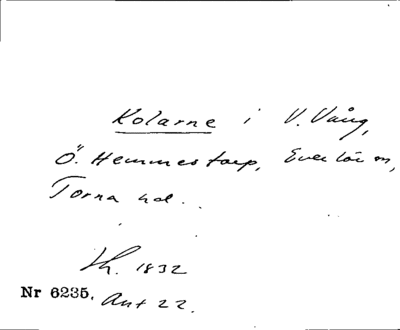 Kolarne i V. Vång,
Ö. Hemmestorp, Everlöv sn,
Torna hd.
Th. 1832
Nr 6235. Ant 22.